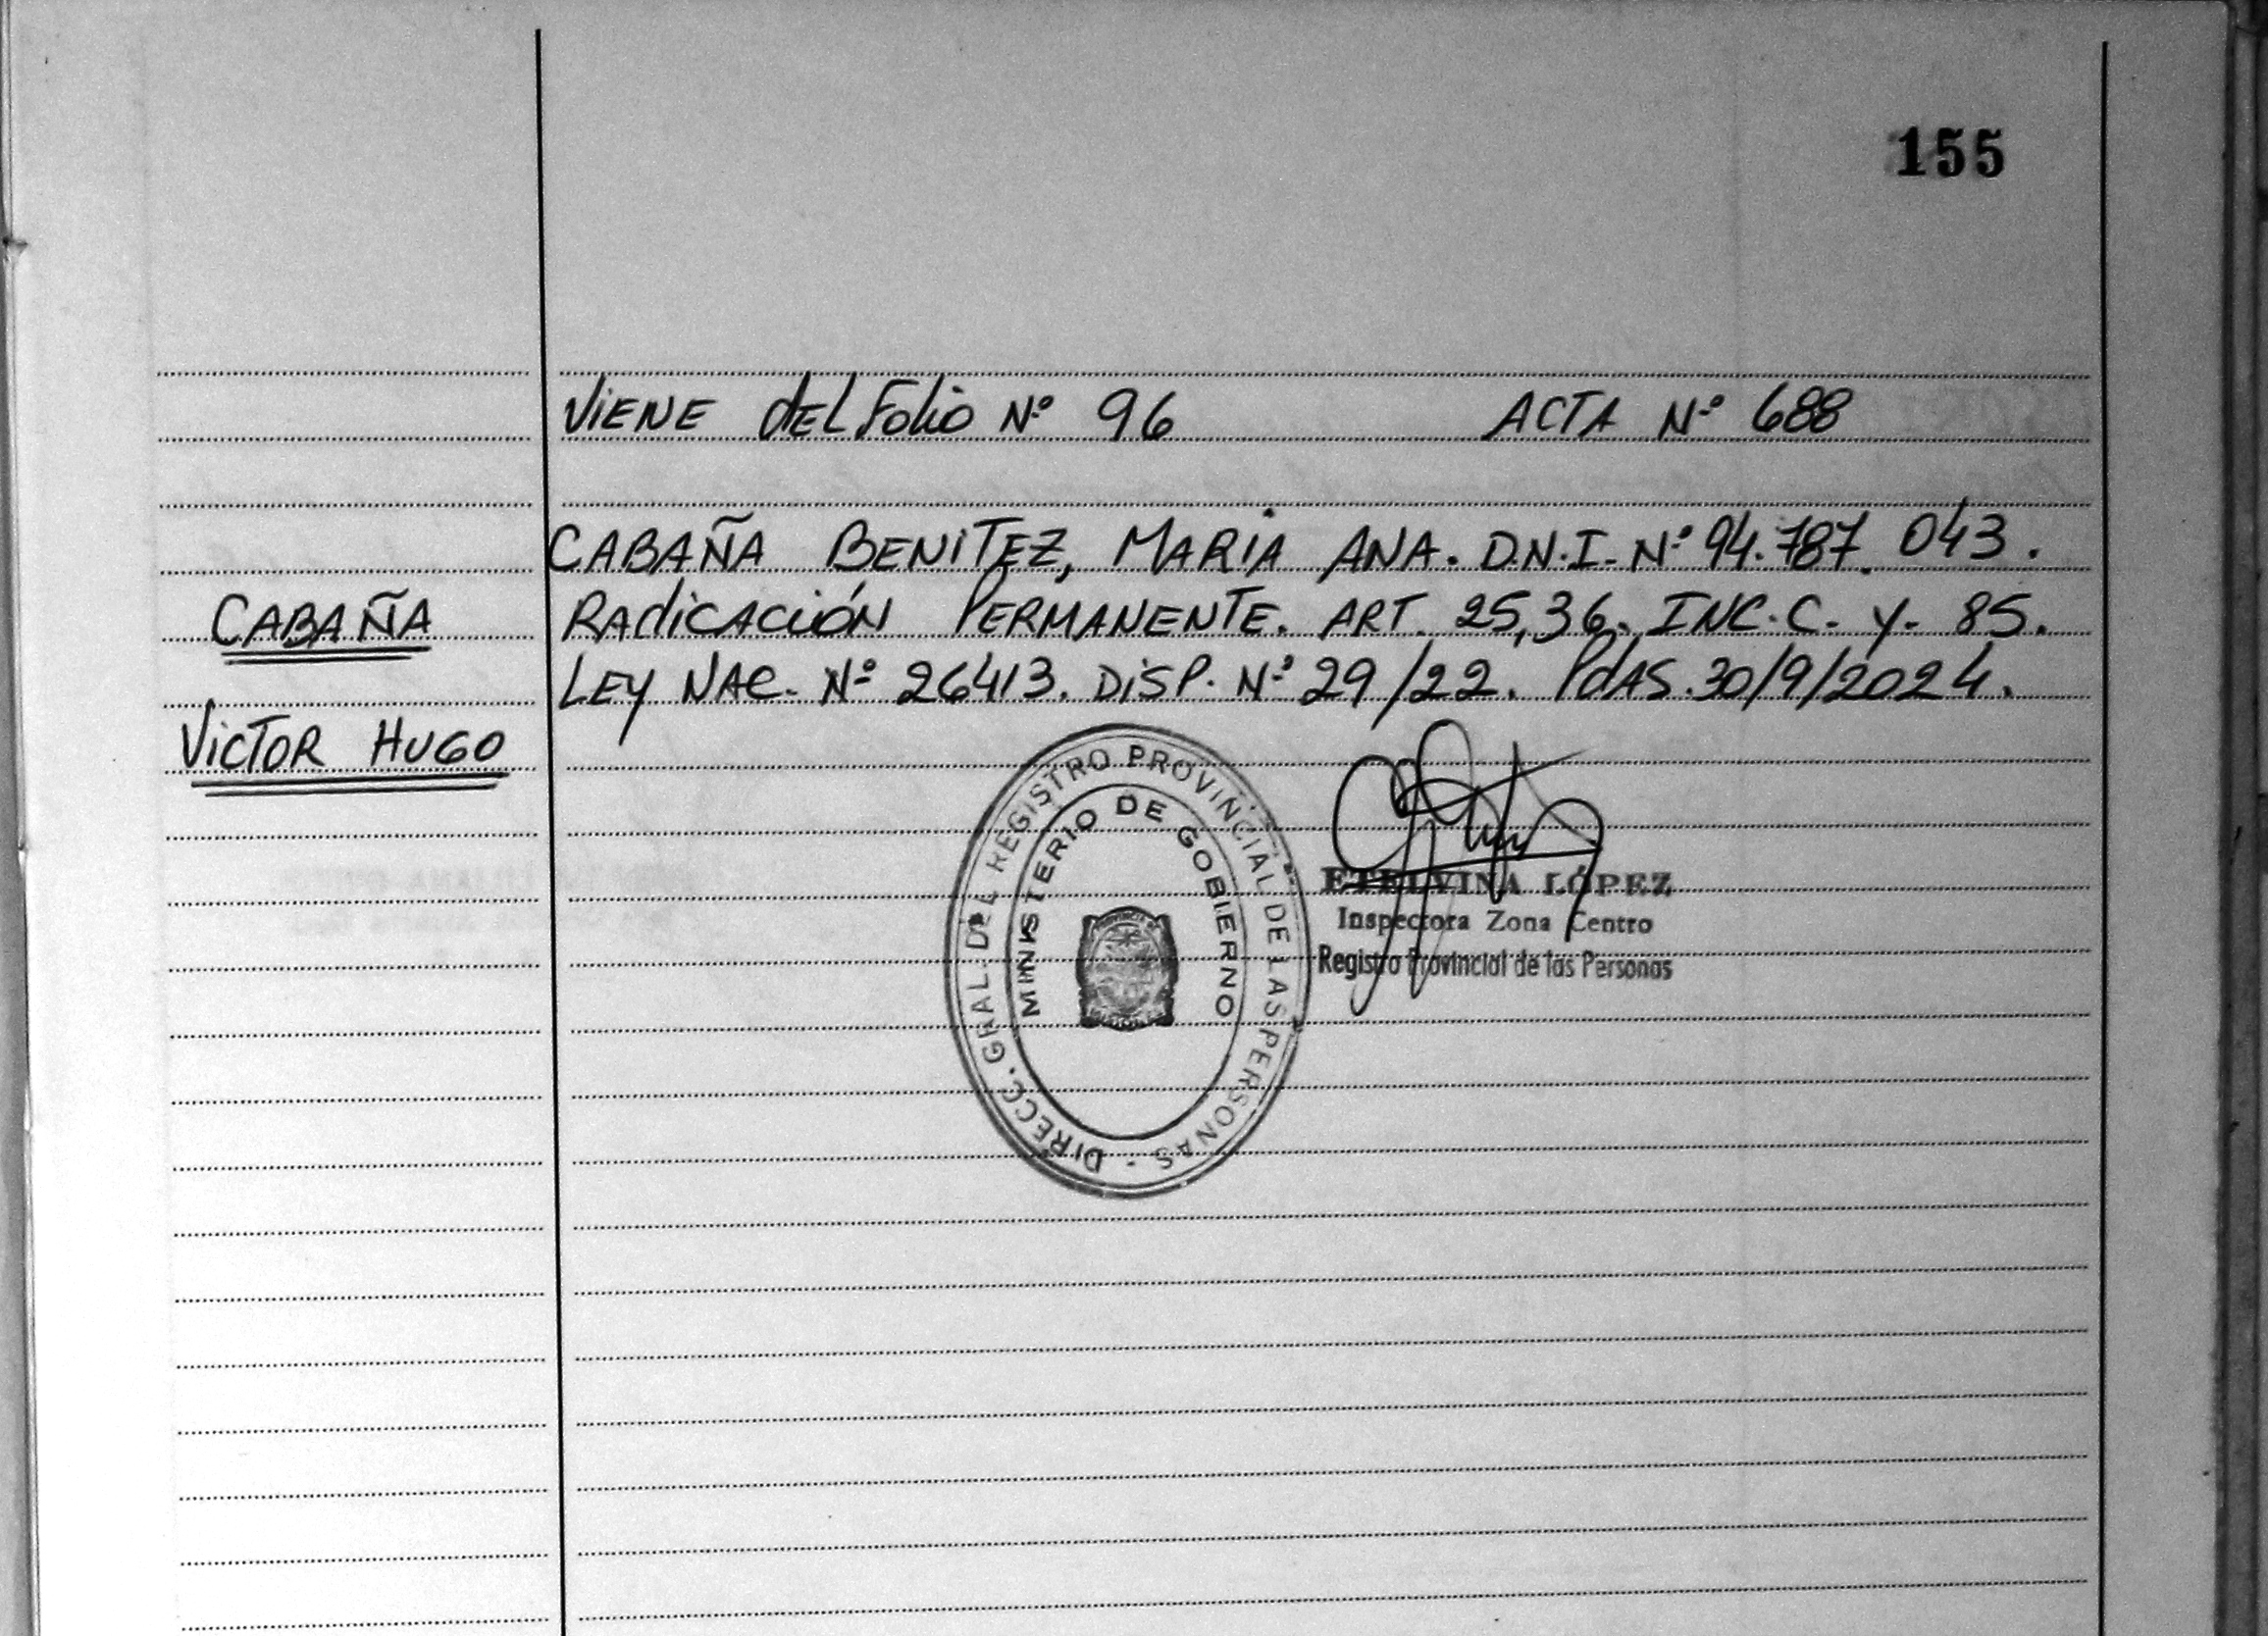 155
ViENE dEL Folio Nº 96 ACTA Nº 688
CABAÑA BENiTEZ, MARIA ANA. D.N.I. Nº 94.787.043.
CABAÑA RAdiCACióN PERMANENTE. ART. 25,36. INC. C. Y. 85.
LEY NAC. Nº 26413. DiSP. Nº 29/22. PdAS. 30/9/2024.
VICTOR HUGO
DIRECC. GRAL. DEL REGISTRO PROVINCIAL DE LAS PERSONAS -
MINISTERIO DE GOBIERNO
ETELVINA LÓPEZ
Inspectora Zona Centro
Registro Provincial de las Personas